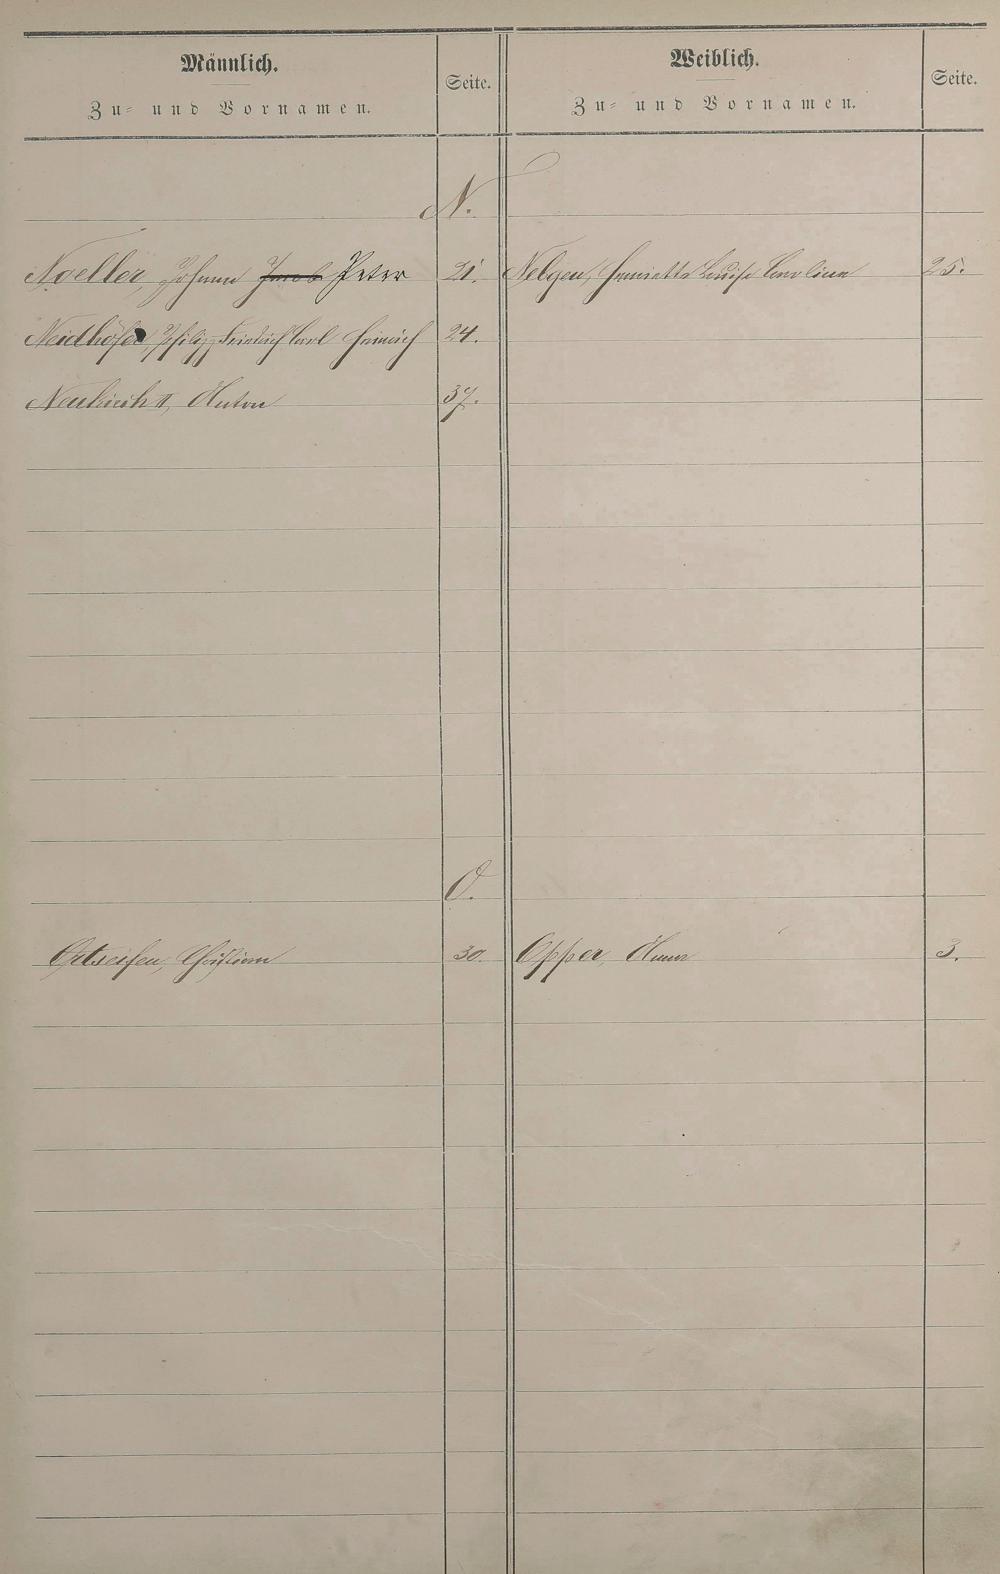 Männlich.
Zu- und Vornamen.
Seite.
Weiblich.
Zu- und Vornamen.
Seite.
N.
Noeller, Johann Jacob Peter 21. Nelgen, Henriette Louise Caroline 25.
Neidhöfer, Philipp Friedrich Carl Heinrich 24.
Neukirch II, Anton 37.
O.
Ortseifen, Christian 30. Opper, Anna 3.